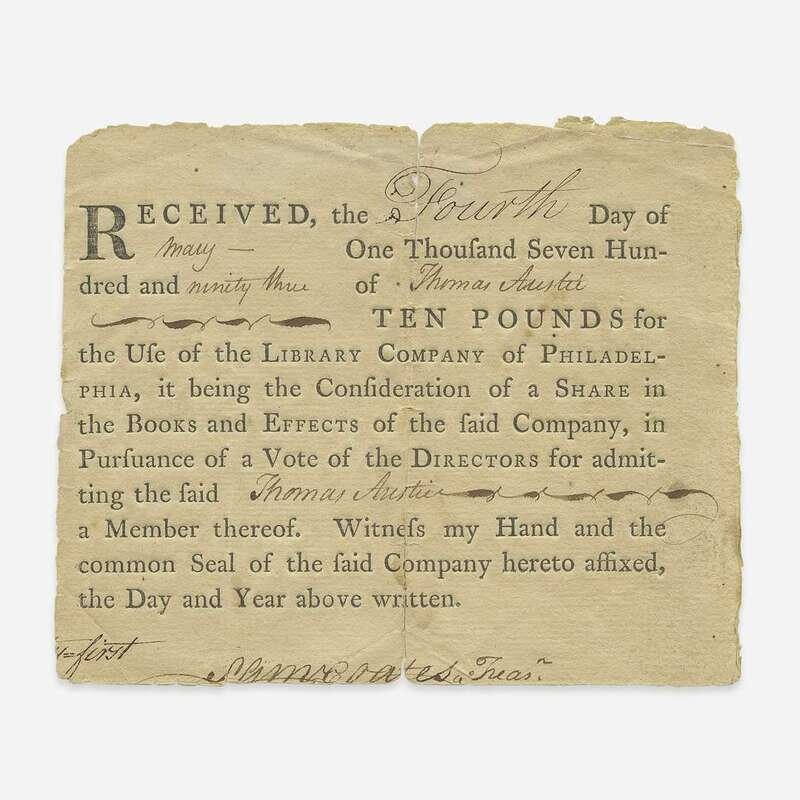 RECEIVED, the Fourth Day of
May — One Thouſand Seven Hun-
dred and ninety three of Thomas Austin
TEN POUNDS for
the Uſe of the LIBRARY COMPANY of PHILADEL-
PHIA, it being the Conſideration of a SHARE in
the BOOKS and EFFECTS of the ſaid Company, in
Purſuance of a Vote of the DIRECTORS for admit-
ting the ſaid Thomas Austin
a Member thereof. Witneſs my Hand and the
common Seal of the ſaid Company hereto affixed,
the Day and Year above written.
first
Coates Treasr.